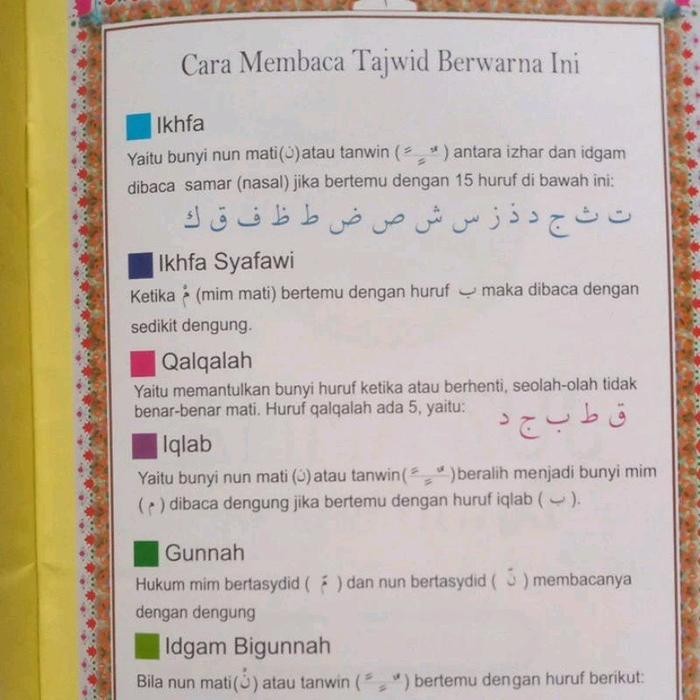 ١
Cara Membaca Tajwid Berwarna Ini
Ikhfa
Yaitu bunyi nun mati (ن) atau tanwin ( ـًـٍـٌ ) antara izhar dan idgam
dibaca samar (nasal) jika bertemu dengan 15 huruf di bawah ini:
ت ث ج د ذ ز س ش ص ض ط ظ ف ق ك
Ikhfa Syafawi
Ketika مْ (mim mati) bertemu dengan huruf ب maka dibaca dengan
sedikit dengung.
Qalqalah
Yaitu memantulkan bunyi huruf ketika atau berhenti, seolah-olah tidak
benar-benar mati. Huruf qalqalah ada 5, yaitu: ق ط ب ج د
Iqlab
Yaitu bunyi nun mati (ن) atau tanwin ( ـًـٍـٌ ) beralih menjadi bunyi mim
( م ) dibaca dengung jika bertemu dengan huruf iqlab ( ب ).
Gunnah
Hukum mim bertasydid ( مّ ) dan nun bertasydid ( نّ ) membacanya
dengan dengung
Idgam Bigunnah
Bila nun mati (نْ) atau tanwin ( ـًـٍـٌ ) bertemu dengan huruf berikut: